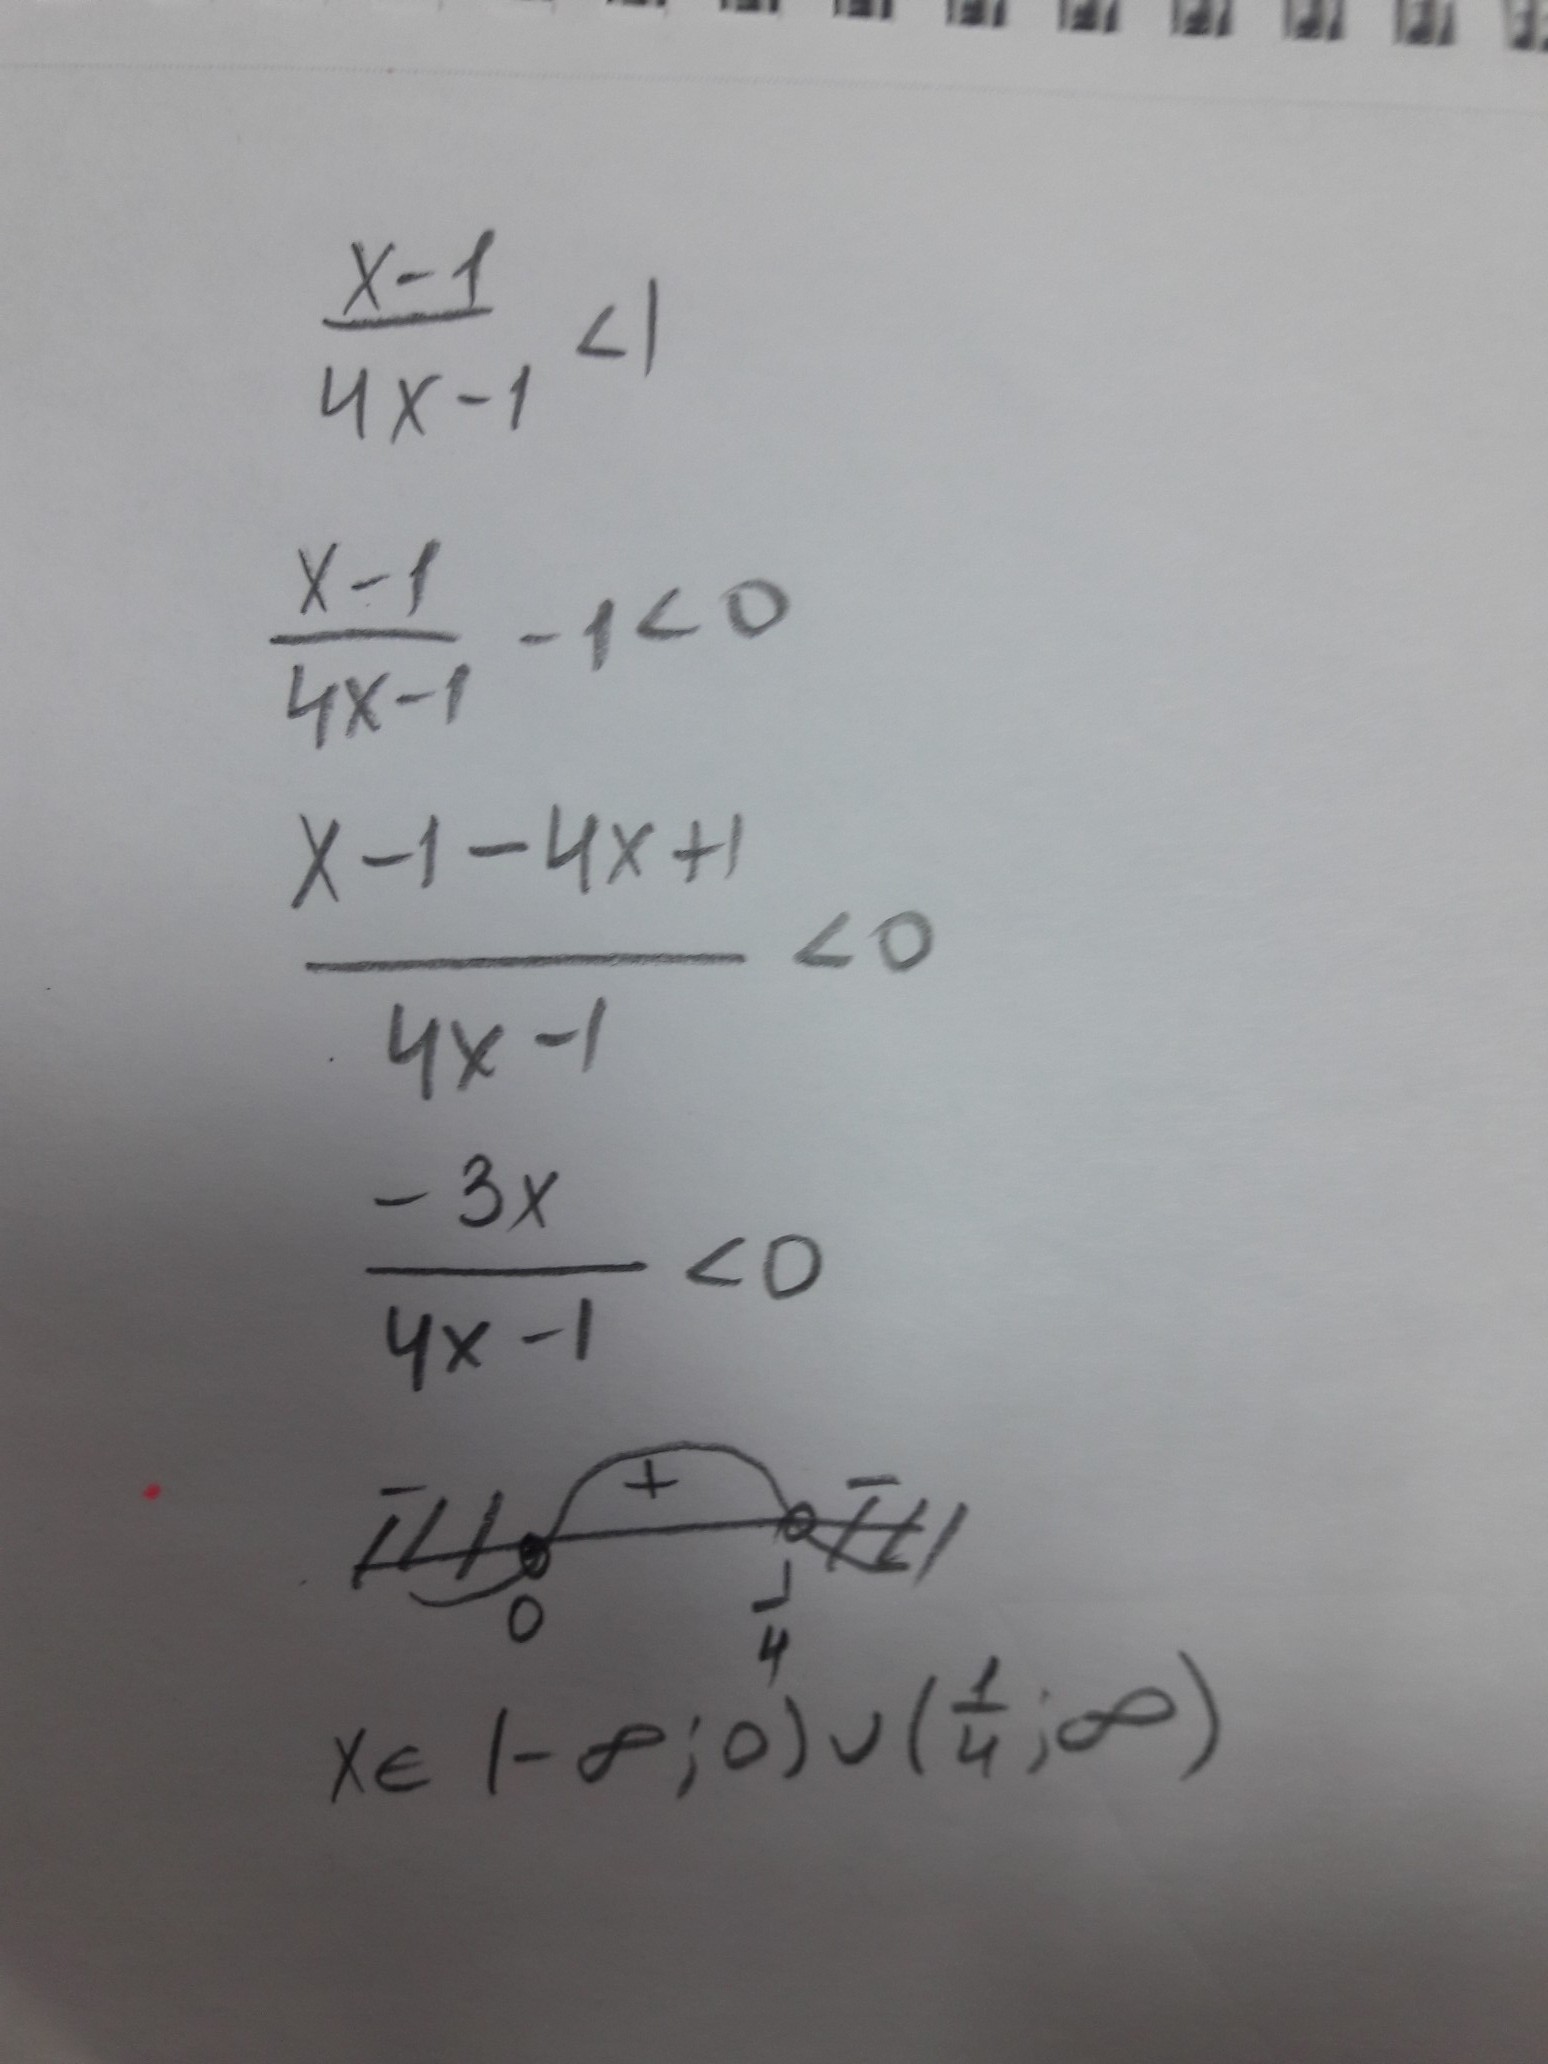 x-1
4x-1 <1
x-1
4x-1 -1<0
x-1-4x+1
4x-1 <0
-3x
4x-1 <0
- + -
0 1/4
x∈(-∞;0)∪(1/4;∞)